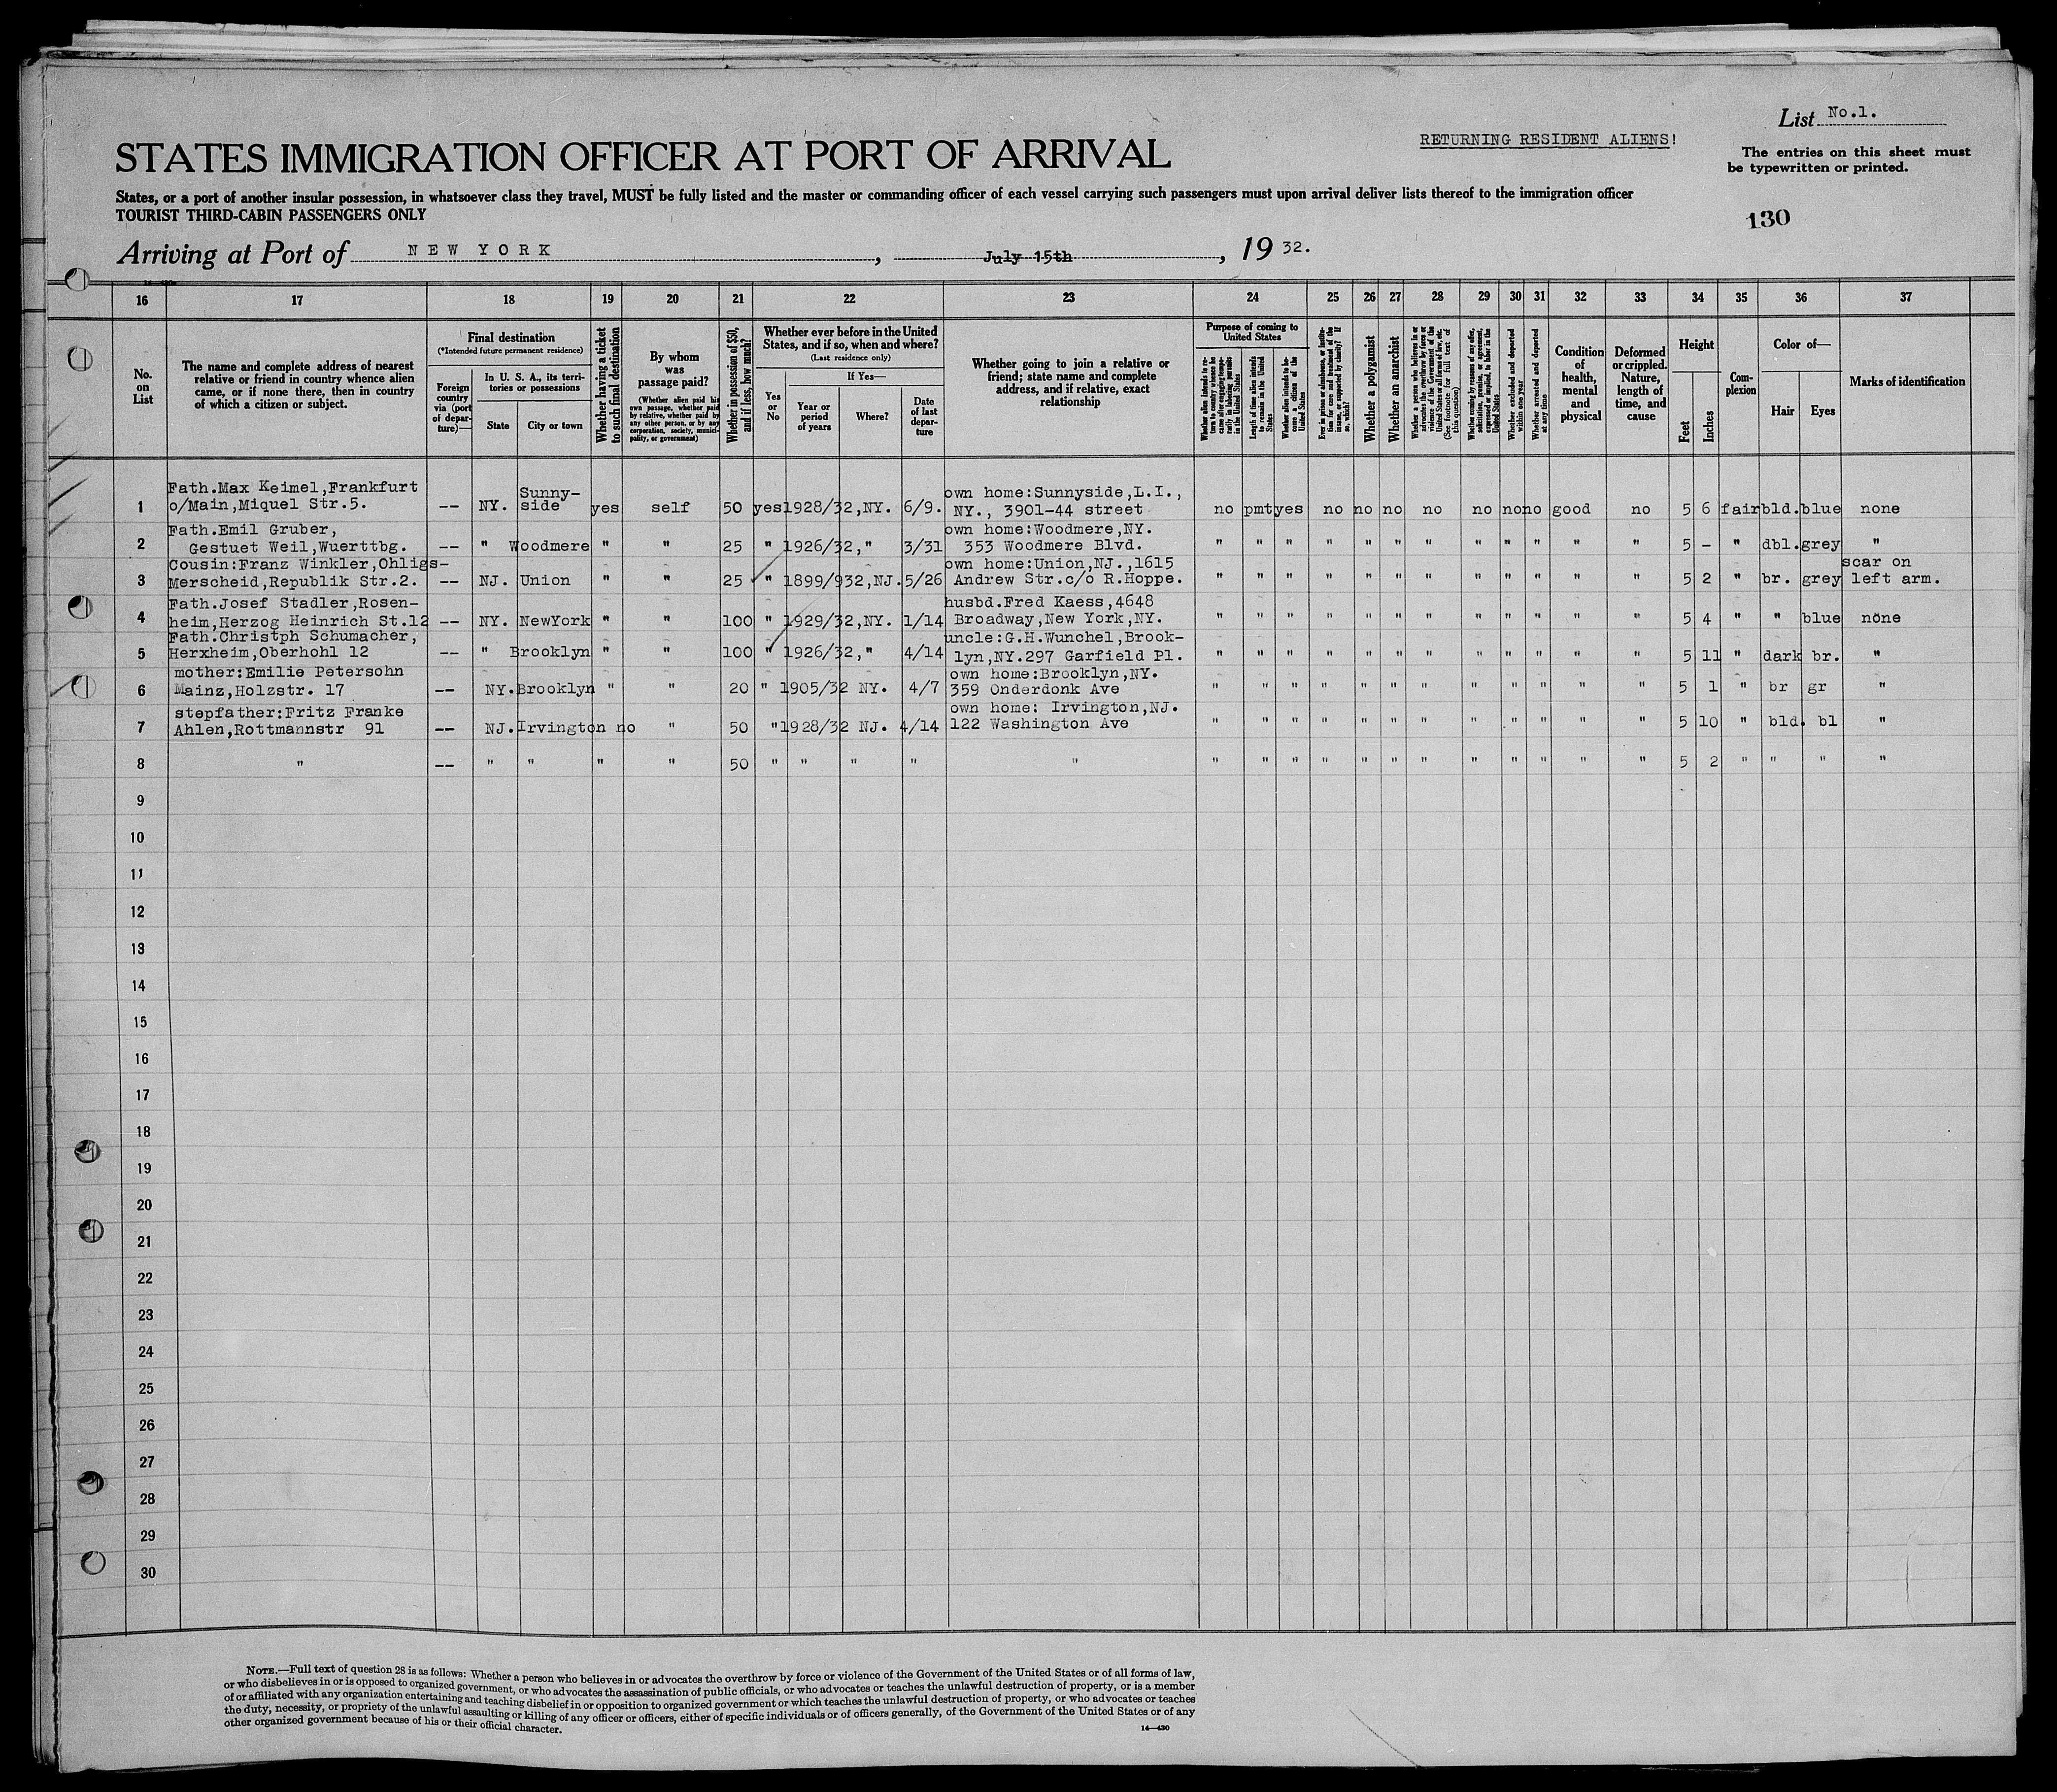 List No.1.
RETURNING RESIDENT ALIENS!
The entries on this sheet must
be typewritten or printed.
STATES IMMIGRATION OFFICER AT PORT OF ARRIVAL
States, or a port of another insular possession, in whatsoever class they travel, MUST be fully listed and the master or commanding officer of each vessel carrying such passengers must upon arrival deliver lists thereof to the immigration officer
TOURIST THIRD-CABIN PASSENGERS ONLY
130
Arriving at Port of NEW YORK, July 15th, 1932.
16 17 18 19 20 21 22 23 24 25 26 27 28 29 30 31 32 33 34 35 36 37
No. on List
The name and complete address of nearest
relative or friend in country whence alien
came, or if none there, then in country
of which a citizen or subject.
Final destination
(*Intended future permanent residence)
Foreign country via (port of departure)—
In U. S. A., its territories or possessions
State
City or town
Whether having a ticket to such final destination
By whom was passage paid?
(Whether alien paid his own passage, whether paid by relative, whether paid by any other person, or by any corporation, society, municipality, or government)
Whether in possession of $50, and if less, how much?
Whether ever before in the United States, and if so, when and where?
(Last residence only)
If Yes—
Yes or No
Year or period of years
Where?
Date of last departure
Whether going to join a relative or
friend; state name and complete
address, and if relative, exact
relationship
Purpose of coming to United States
Whether alien intends to return to country whence he came after engaging temporarily in laboring pursuits in the United States
Length of time alien intends to remain in the United States
Whether alien intends to become a citizen of the United States
Ever in prison or almshouse, or institution for care and treatment of the insane, or supported by charity? If so, which?
Whether a polygamist
Whether an anarchist
Whether a person who believes in or advocates the overthrow by force or violence of the Government of the United States or all forms of law, etc. (See footnote for full text of this question)
Whether coming by reason of any offer, solicitation, promise, or agreement, expressed or implied, to labor in the United States
Whether excluded and deported within one year
Whether arrested and deported at any time
Condition of health, mental and physical
Deformed or crippled. Nature, length of time, and cause
Height
Feet
Inches
Complexion
Color of—
Hair
Eyes
Marks of identification
Fath.Max Keimel,Frankfurt Sunny- own home:Sunnyside,L.I.,
1 o/Main,Miquel Str.5. -- NY. side yes self 50 yes 1928/32,NY. 6/9. NY., 3901-44 street no pmt yes no no no no no no no good no 5 6 fair bld. blue none
Fath.Emil Gruber, own home:Woodmere,NY.
2 Gestuet Weil,Wuerttbg. -- " Woodmere " " 25 " 1926/32," 3/31 353 Woodmere Blvd. " " " " " " " " " " " " 5 - " dbl. grey "
Cousin:Franz Winkler,Ohligs- own home:Union,NJ.,1615 scar on
3 Merscheid,Republik Str.2. -- NJ. Union " " 25 " 1899/932,NJ. 5/26 Andrew Str.c/o R.Hoppe. " " " " " " " " " " " " 5 2 " br. grey left arm.
Fath.Josef Stadler,Rosen- husbd.Fred Kaess,4648
4 heim,Herzog Heinrich St.12 -- NY. NewYork " " 100 " 1929/32,NY. 1/14 Broadway,New York,NY. " " " " " " " " " " " " 5 4 " " blue none
Fath.Christph Schumacher, uncle:G.H.Wunchel,Brook-
5 Herxheim,Oberhohl 12 -- " Brooklyn " " 100 " 1926/32," 4/14 lyn,NY.297 Garfield Pl. " " " " " " " " " " " " 5 11 " dark br. "
mother:Emilie Petersohn own home:Brooklyn,NY.
6 Mainz,Holzstr. 17 -- NY. Brooklyn " " 20 " 1905/32 NY. 4/7 359 Onderdonk Ave " " " " " " " " " " " " 5 1 " br gr "
stepfather:Fritz Franke own home: Irvington,NJ.
7 Ahlen,Rottmannstr 91 -- NJ. Irvington no " 50 " 1928/32 NJ. 4/14 122 Washington Ave " " " " " " " " " " " " 5 10 " bld. bl "
8 " -- " " " " 50 " " " " " " " " " " " " " " " " " " 5 2 " " " "
9
10
11
12
13
14
15
16
17
18
19
20
21
22
23
24
25
26
27
28
29
30
NOTE.—Full text of question 28 is as follows: Whether a person who believes in or advocates the overthrow by force or violence of the Government of the United States or of all forms of law,
or who disbelieves in or is opposed to organized government, or who advocates the assassination of public officials, or who advocates or teaches the unlawful destruction of property, or is a member
of or affiliated with any organization entertaining and teaching disbelief in or opposition to organized government or which teaches the unlawful destruction of property, or who advocates or teaches
the duty, necessity, or propriety of the unlawful assaulting or killing of any officer or officers, either of specific individuals or of officers generally, of the Government of the United States or of any
other organized government because of his or their official character.
14—430